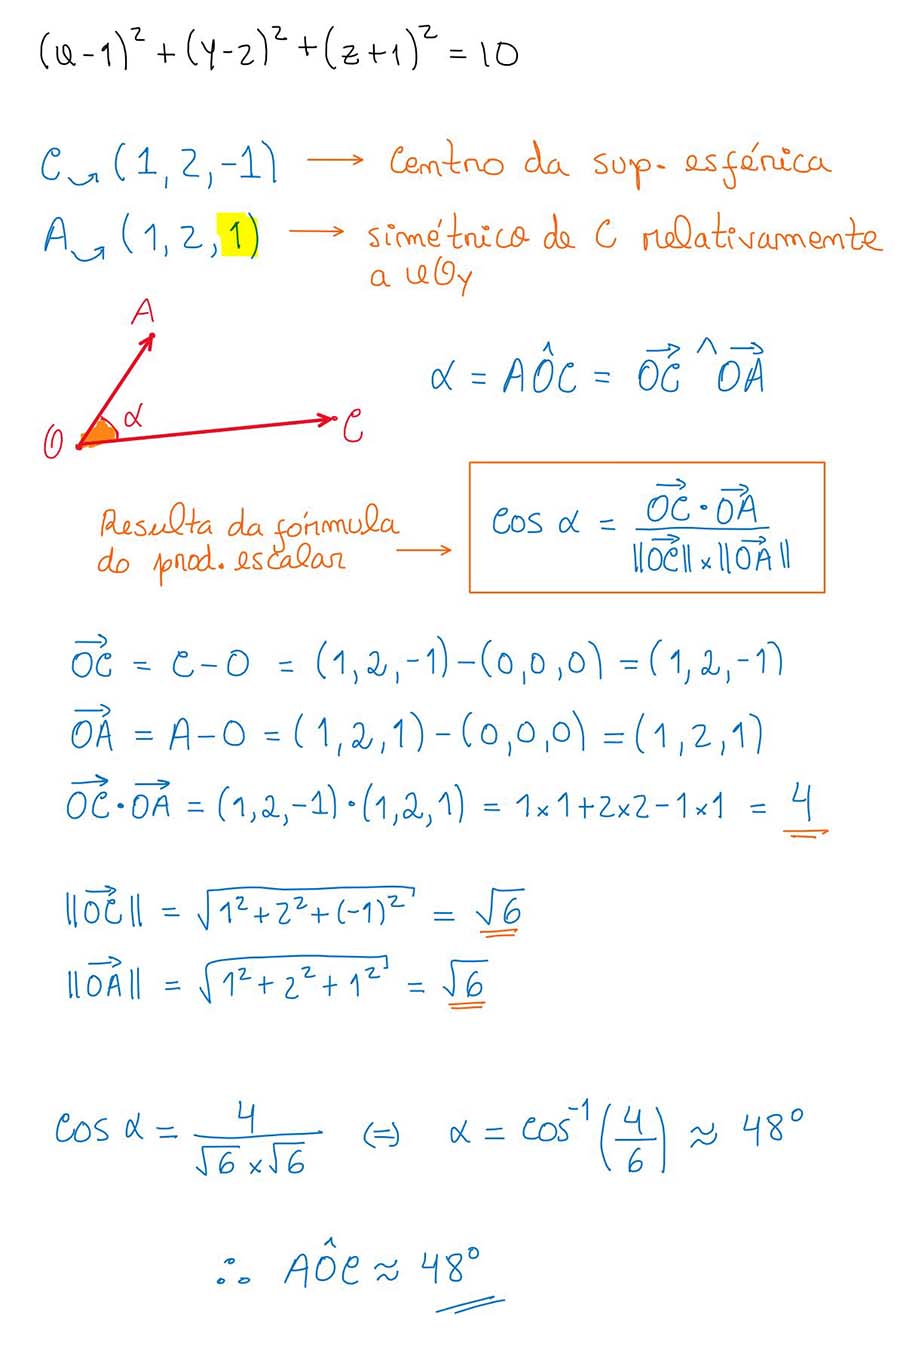 (x-1)² + (y-2)² + (z+1)² = 10
C↝(1, 2, -1) → Centro da sup. esférica
A↝(1, 2, 1) → simétrico de C relativamente
a xOy
A
O α C
α = AÔC = OC⃗ ^ OA⃗
Resulta da fórmula
do prod. escalar →
cos α = (OC⃗ · OA⃗) / (‖OC⃗‖ × ‖OA⃗‖)
OC⃗ = C - O = (1, 2, -1) - (0, 0, 0) = (1, 2, -1)
OA⃗ = A - O = (1, 2, 1) - (0, 0, 0) = (1, 2, 1)
OC⃗ · OA⃗ = (1, 2, -1) · (1, 2, 1) = 1×1+2×2-1×1 = 4
‖OC⃗‖ = √(1² + 2² + (-1)²) = √6
‖OA⃗‖ = √(1² + 2² + 1²) = √6
cos α = 4 / (√6 × √6) (=) α = cos⁻¹(4/6) ≈ 48°
∴ AÔC ≈ 48°